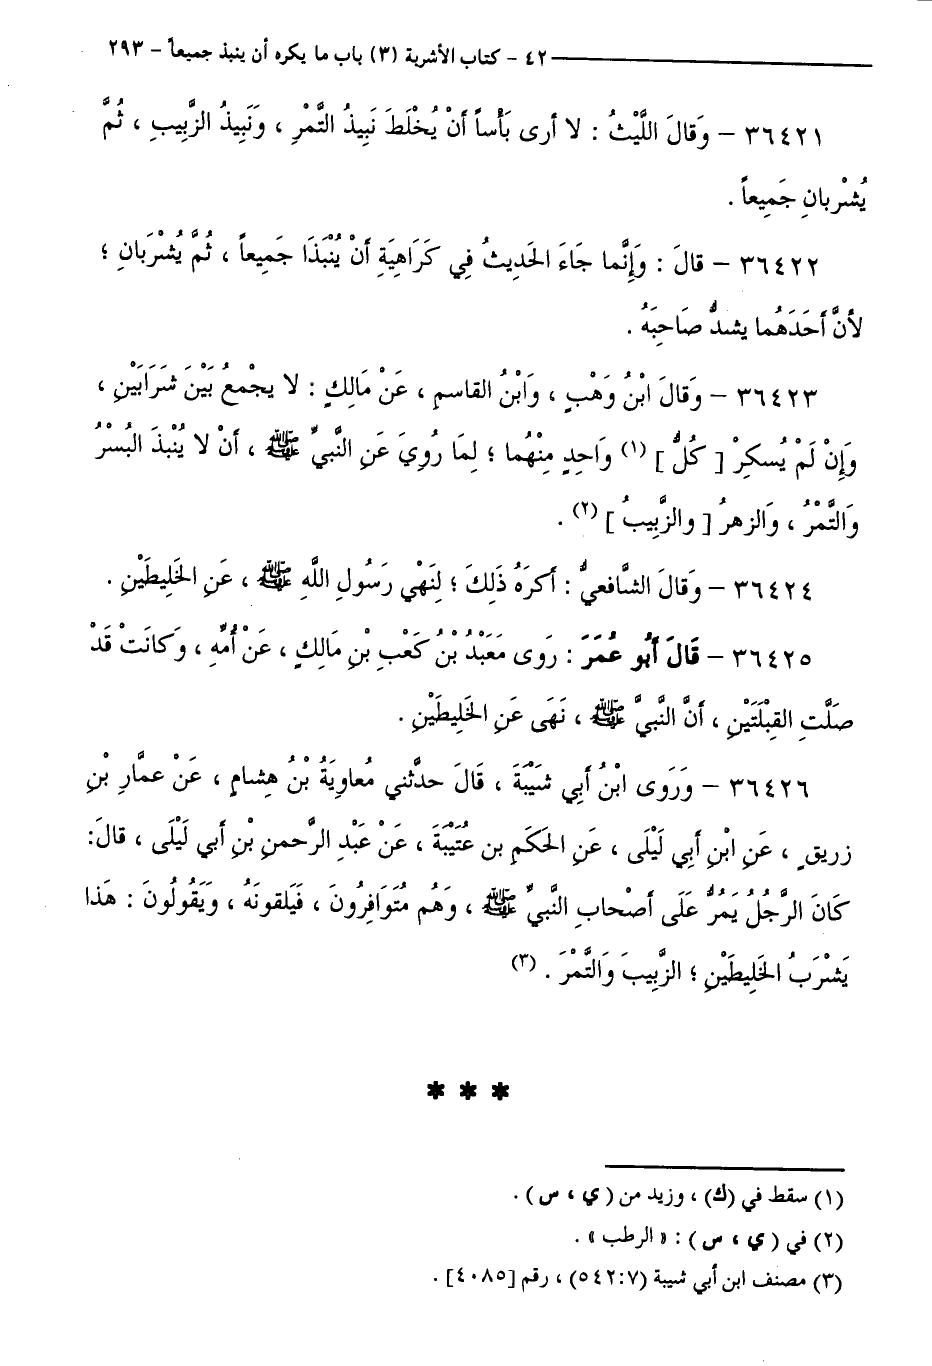 ٤٢ - كتاب الأشربة (٣) باب ما يكره أن ينبذ جميعاً - ٢٩٣
٣٦٤٢١ - وَقالَ اللَّيْثُ : لا أرى بَأْساً أنْ يُخْلَطَ نَبِيذُ التَّمْرِ ، وَنَبِيذُ الزَّبِيبِ ، ثُمَّ
يُشْرَبانِ جَمِيعاً .
٣٦٤٢٢ - قالَ : وَإِنَّما جَاءَ الحَدِيثُ فِي كَرَاهِيَةِ أنْ يُنْبَذَا جَمِيعاً ، ثُمَّ يُشْرَبَانِ ؛
لأنَّ أحَدَهُما يشدُّ صَاحِبَهُ .
٣٦٤٢٣ - وَقالَ ابْنُ وَهْبٍ ، وَابْنُ القاسمِ ، عَنْ مَالِكٍ : لا يجْمعُ بَيْنَ شَرَابَيْنِ ،
وَإنْ لَمْ يُسكِرْ [ كُلُّ ] (١) وَاحِدٍ مِنْهُما ؛ لِمَا رُوِيَ عَنِ النَّبِيِّ ﷺ ، أنْ لا يُنْبذَ البُسْرُ
وَالتَّمْرُ ، وَالزهرُ [ والزَّبِيبُ ] (٢) .
٣٦٤٢٤ - وَقالَ الشَّافعيُّ : أكرَهُ ذَلِكَ ؛ لِنَهْيِ رَسُولِ اللَّهِ ﷺ ، عَنِ الخَلِيطَيْنِ .
٣٦٤٢٥ - قَالَ أَبُو عُمَرَ : رَوى مَعْبَدُ بْنُ كَعْبِ بْنِ مَالِكٍ ، عَنْ أُمِّهِ ، وَكانَتْ قَدْ
صَلَّتِ القِبْلَتَيْنِ ، أنَّ النَّبِيَّ ﷺ ، نَهَى عَنِ الخَلِيطَيْنِ .
٣٦٤٢٦ - وَرَوى ابْنُ أبِي شَيْبَةَ ، قَالَ حدثَّني مُعاوِيَةُ بْنُ هِشامٍ ، عَنْ عمَّارِ بْنِ
زريقٍ ، عَنِ ابْنِ أبِي لَيْلَى ، عَنِ الحَكَمِ بن عُتَيْبَةَ ، عَنْ عَبْدِ الرَّحمنِ بْنِ أبي لَيْلَى ، قالَ:
كَانَ الرَّجُلُ يَمُرُّ عَلَى أصْحابِ النَّبِيِّ ﷺ ، وَهُم مُتَوَافِرُونَ ، فَيَلقونَهُ ، وَيَقُولُونَ : هَذا
يَشْرَبُ الخَلِيطَيْنِ ؛ الزَّبِيبَ وَالتَّمْرَ . (٣)
* * *
(١) سقط في (ك) ، وزيد من ( ي ، س ) .
(٢) في ( ي ، س ) : « الرطب » .
(٣) مصنف ابن أبي شيبة (٥٤٢:٧) ، رقم [٤٠٨٥] .